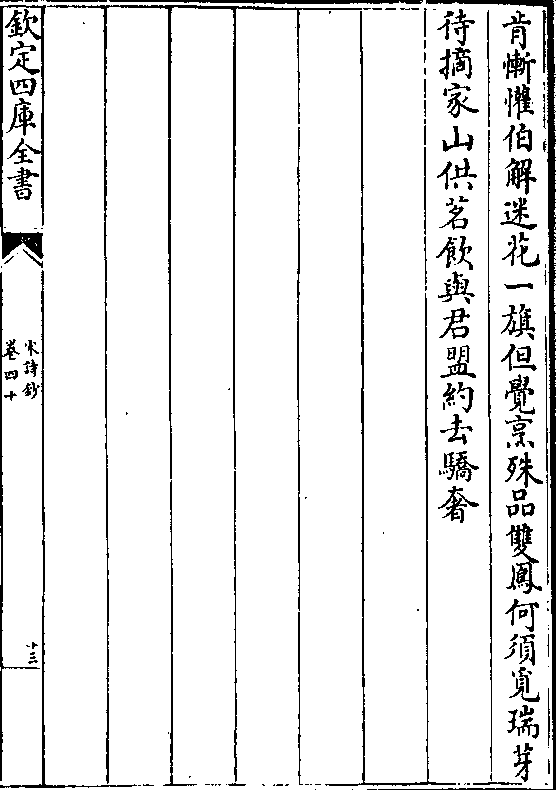 肯慚懼伯解迷花一旗但覺烹殊品雙鳳何須覓瑞芽
待摘家山供茗飲與君盟約去驕奢
欽定四庫全書
宋詩鈔
卷四十
十三